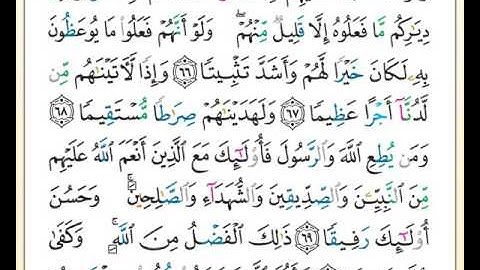 دِيَٰرِكُم مَّا فَعَلُوهُ إِلَّا قَلِيلٌ مِّنْهُمْ ۖ وَلَوْ أَنَّهُمْ فَعَلُوا۟ مَا يُوعَظُونَ
بِهِۦ لَكَانَ خَيْرًا لَّهُمْ وَأَشَدَّ تَثْبِيتًا ٦٦ وَإِذًا لَّـَٔاتَيْنَٰهُم مِّن
لَّدُنَّآ أَجْرًا عَظِيمًا ٦٧ وَلَهَدَيْنَٰهُمْ صِرَٰطًا مُّسْتَقِيمًا ٦٨
وَمَن يُطِعِ ٱللَّهَ وَٱلرَّسُولَ فَأُو۟لَٰٓئِكَ مَعَ ٱلَّذِينَ أَنْعَمَ ٱللَّهُ عَلَيْهِم
مِّنَ ٱلنَّبِيِّـۧنَ وَٱلصِّدِّيقِينَ وَٱلشُّهَدَآءِ وَٱلصَّٰلِحِينَ ۚ وَحَسُنَ
أُو۟لَٰٓئِكَ رَفِيقًا ٦٩ ذَٰلِكَ ٱلْفَضْلُ مِنَ ٱللَّهِ ۚ وَكَفَىٰ